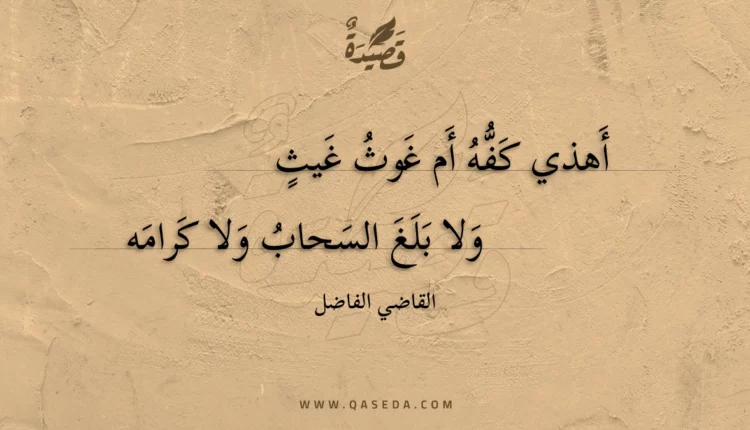 قَصِيدَةٌ
أَهذي كَفُّهُ أَم غَوثُ غَيثٍ
وَلا بَلَغَ السَحابُ وَلا كَرامَه
القاضي الفاضل
WWW.QASEDA.COM